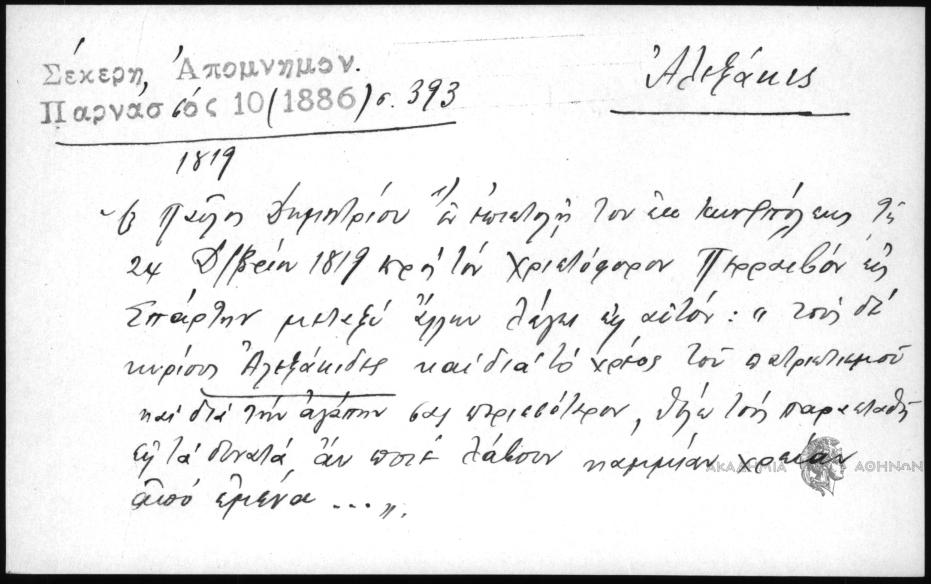 Σέκερη, Ἀπομνημον.
Παρνασσός 10 (1886) σ. 393
Ἀλεξάκης
1819
Ὁ Παῦλος Δημητρίου ἐν ἐπιστολῇ του ἐκ Κων/πόλεως τῆς
24 Δ/βρίου 1819 πρὸς τὸν Χριστόφορον Περραιβόν εἰς
Σπάρτην μεταξὺ ἄλλων λέγει εἰς αὐτόν: „ τοὺς δὲ
κυρίους Ἀλεξάκιδες καὶ διὰ τὸ χρέος τοῦ πατριωτισμοῦ
καὶ διὰ τὴν ἀγάπην σας περισσότερον, θέλω τοὺς παρασταθῆ
εἰς τὰ δυνατά, ἂν ποτὲ λάβουν καμμίαν χρείαν
ἀπό ἐμένα ...„.
ΑΚΑΔΗΜΙΑ ΑΘΗΝΩΝ